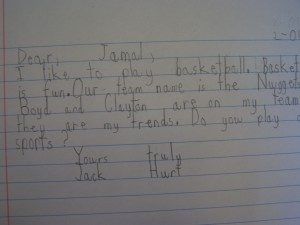 Dear, Jamal,
I like to play basketball. basket
is fun. Our team name is the Nuggets
Boyd and Clayton are on my team
they are my frends. Do you play
sports?
Yours truly
Jack Hurt